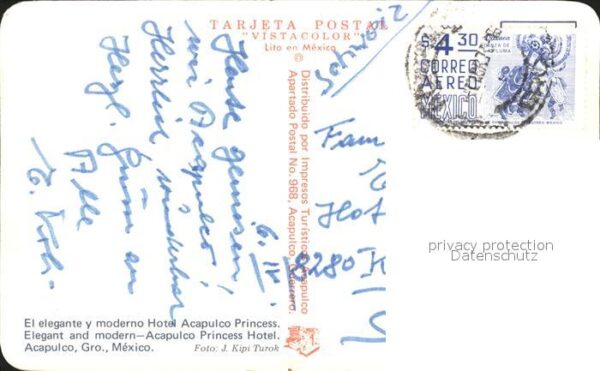 TARJETA POSTAL
"VISTACOLOR"
Lito en México
©
Distribuido por Impresos Turístico Acapulco
Apartado Postal No. 968, Acapulco, Guerrero.
6. IV.
Heute genossen
wir Acapulco!
Herrlich wunderbar
Herzl. Grüsse an
Alle
Fam
Hot
8280
$4.30
CORREO
AEREO
MEXICO
privacy protection
Datenschutz
El elegante y moderno Hotel Acapulco Princess.
Elegant and modern—Acapulco Princess Hotel.
Acapulco, Gro., México.
Foto: J. Kipi Turok